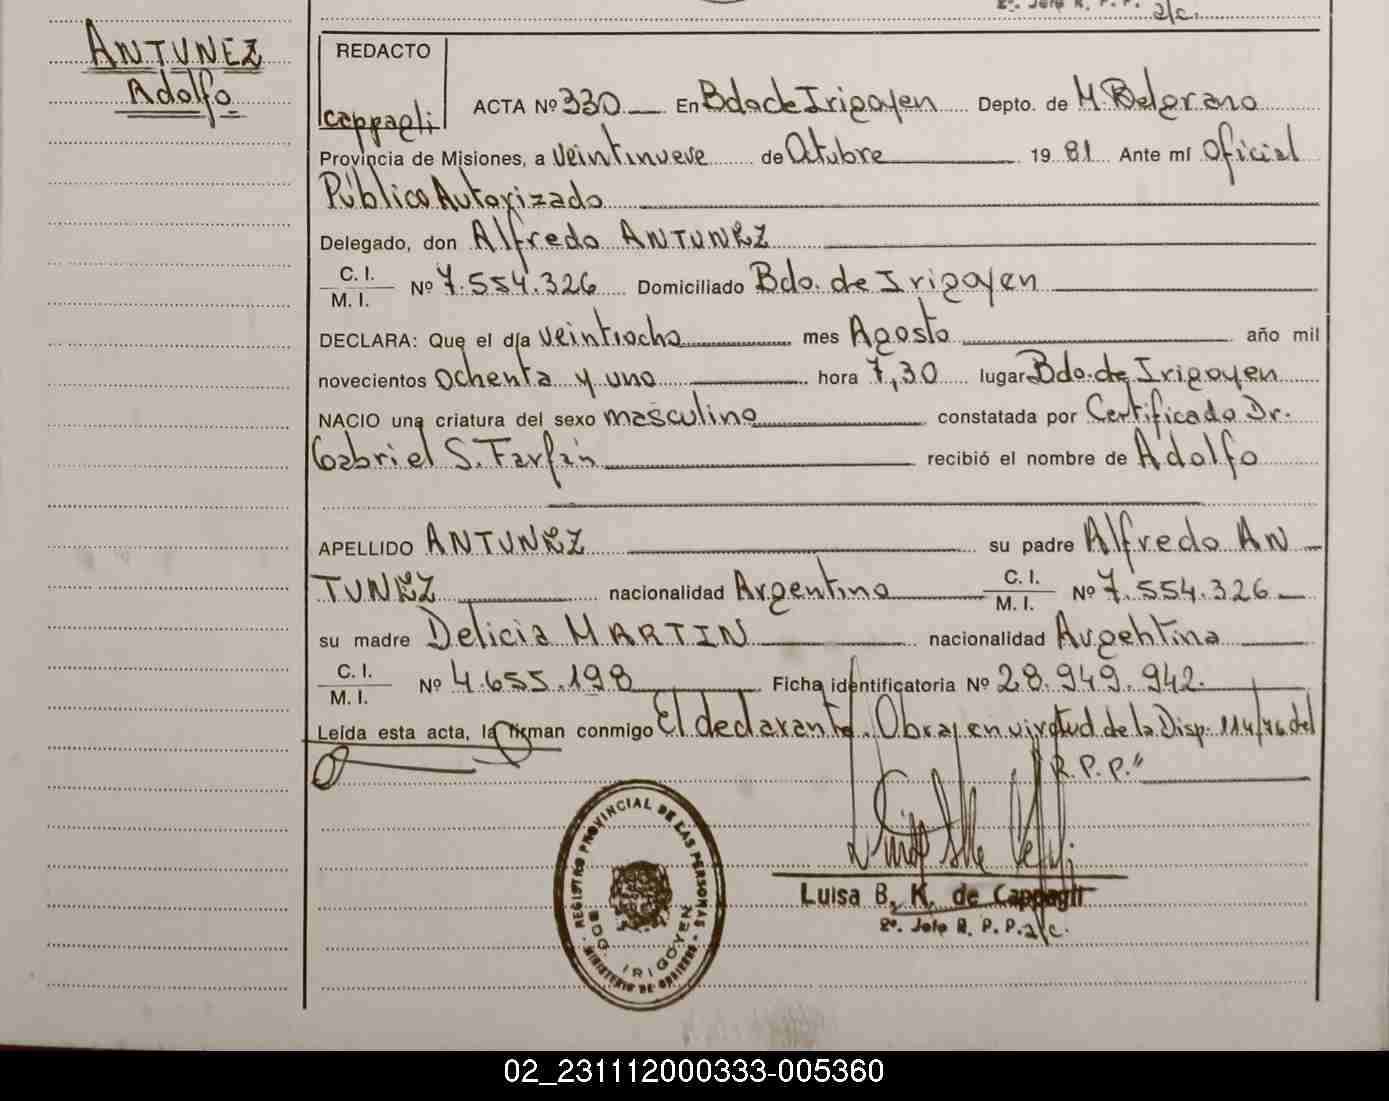 2º. Jefe R. P. P. a/c.
ANTUNEZ
Adolfo
REDACTO
cappagli
ACTA Nº 330 En Bdo de Irigoyen Depto. de M. Belgrano
Provincia de Misiones, a veintinueve de Octubre 19 81 Ante mí Oficial
Público Autorizado
Delegado, don Alfredo ANTUNEZ
C. I.
M. I. Nº 7.554.326 Domiciliado Bdo. de Irigoyen
DECLARA: Que el día veintiocho mes Agosto año mil
novecientos ochenta y uno hora 7,30 lugar Bdo. de Irigoyen
NACIO una criatura del sexo masculino constatada por Certificado Dr.
Gabriel S. Farfán recibió el nombre de Adolfo
APELLIDO ANTUNEZ su padre Alfredo AN
TUNEZ nacionalidad Argentina C. I.
M. I. Nº 7.554.326
su madre Delicia MARTIN nacionalidad Argentina
C. I.
M. I. Nº 4.655.198 Ficha identificatoria Nº 28.949.942.
Leída esta acta, la firman conmigo El declarante. Obra en virtud de la Disp. 114/76 del
R.P.P."
REGISTRO PROVINCIAL DE LAS PERSONAS
BDO. IRIGOYEN
MINISTERIO DE GOBIERNO
Luisa B. K. de Cappagli
2º. Jefe R. P. P. a/c.
02_231112000333-005360